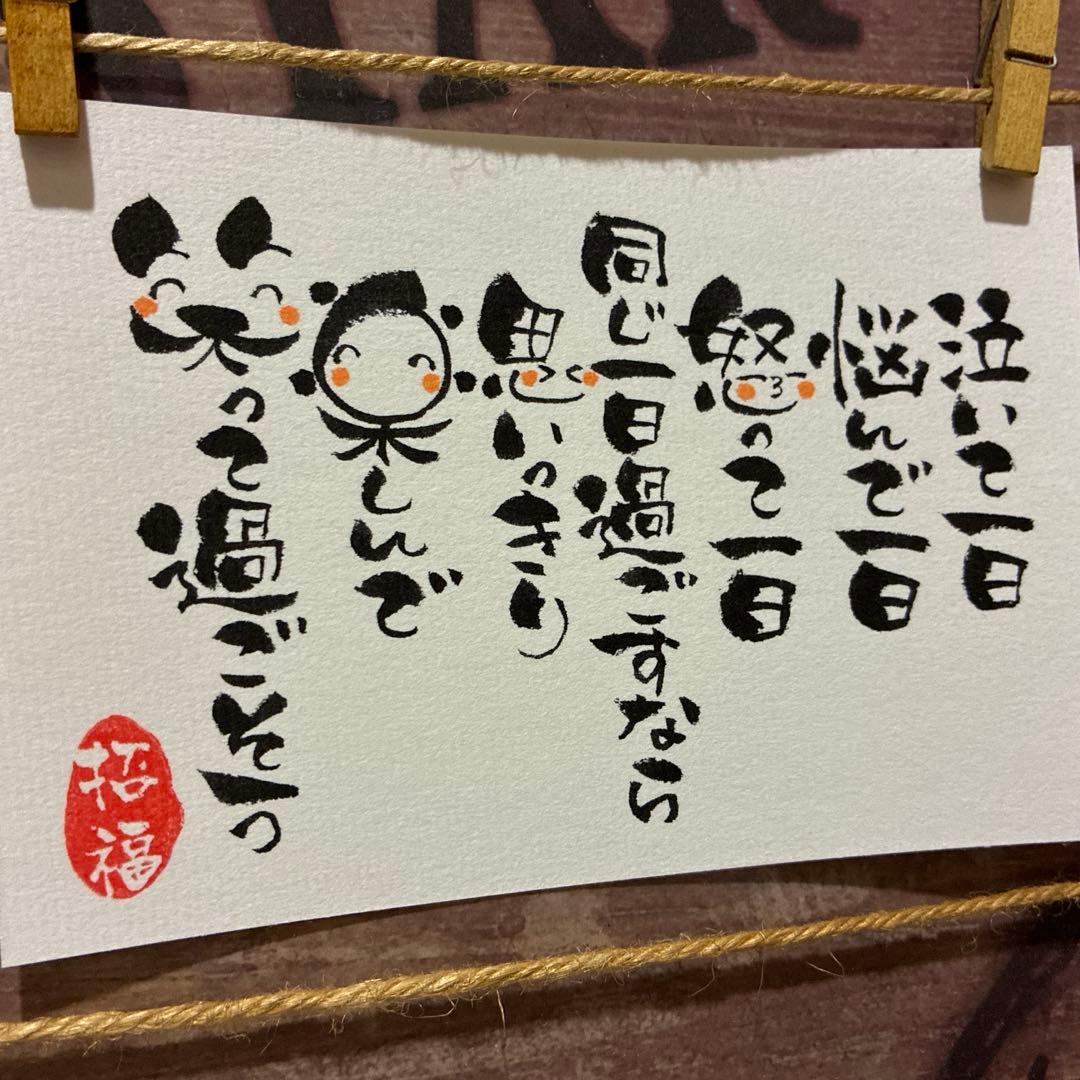 泣いて一日
悩んで一日
怒って一日
同じ一日過ごすなら
思いっきり
楽しんで
笑って過ごそっ
招福